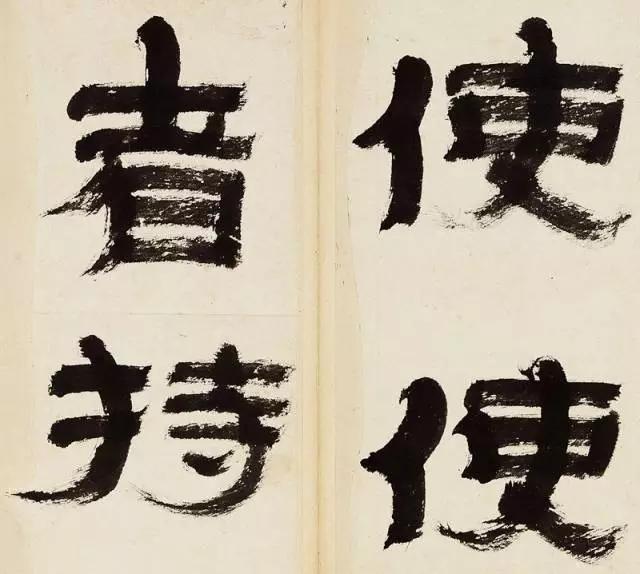 使使
者持